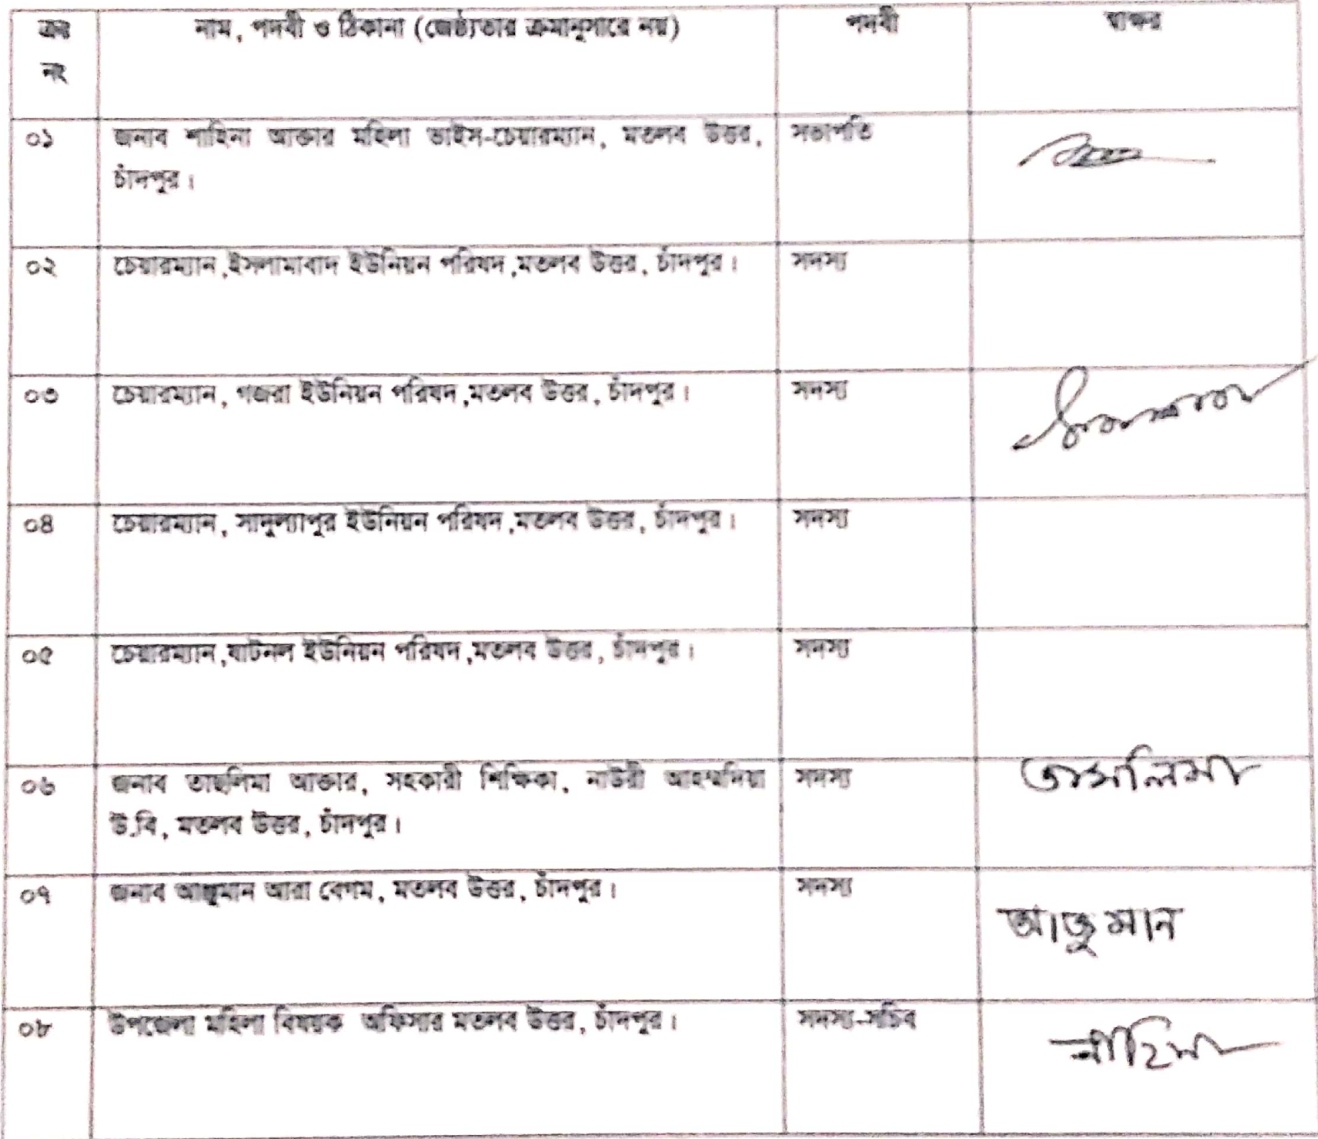 ক্রম নাম, পদবী ও ঠিকানা (জেষ্ঠ্যতার ক্রমানুসারে নয়) পদবী স্বাক্ষর
নং
০১ জনাব শাহিনা আক্তার মহিলা ভাইস-চেয়ারম্যান, মতলব উত্তর, সভাপতি
চাঁদপুর।
০২ চেয়ারম্যান ,ইসলামাবাদ ইউনিয়ন পরিষদ ,মতলব উত্তর, চাঁদপুর। সদস্য
০৩ চেয়ারম্যান, গজরা ইউনিয়ন পরিষদ ,মতলব উত্তর, চাঁদপুর। সদস্য
০৪ চেয়ারম্যান, সাদুল্যাপুর ইউনিয়ন পরিষদ ,মতলব উত্তর, চাঁদপুর। সদস্য
০৫ চেয়ারম্যান ,ষাটনল ইউনিয়ন পরিষদ ,মতলব উত্তর, চাঁদপুর। সদস্য
০৬ জনাব তাছলিমা আক্তার, সহকারী শিক্ষিকা, নাউরী আহম্মদিয়া সদস্য তাসলিমা
উ.বি, মতলব উত্তর, চাঁদপুর।
০৭ জনাব আঞ্জুমান আরা বেগম, মতলব উত্তর, চাঁদপুর। সদস্য আজুমান
০৮ উপজেলা মহিলা বিষয়ক অফিসার মতলব উত্তর, চাঁদপুর। সদস্য-সচিব